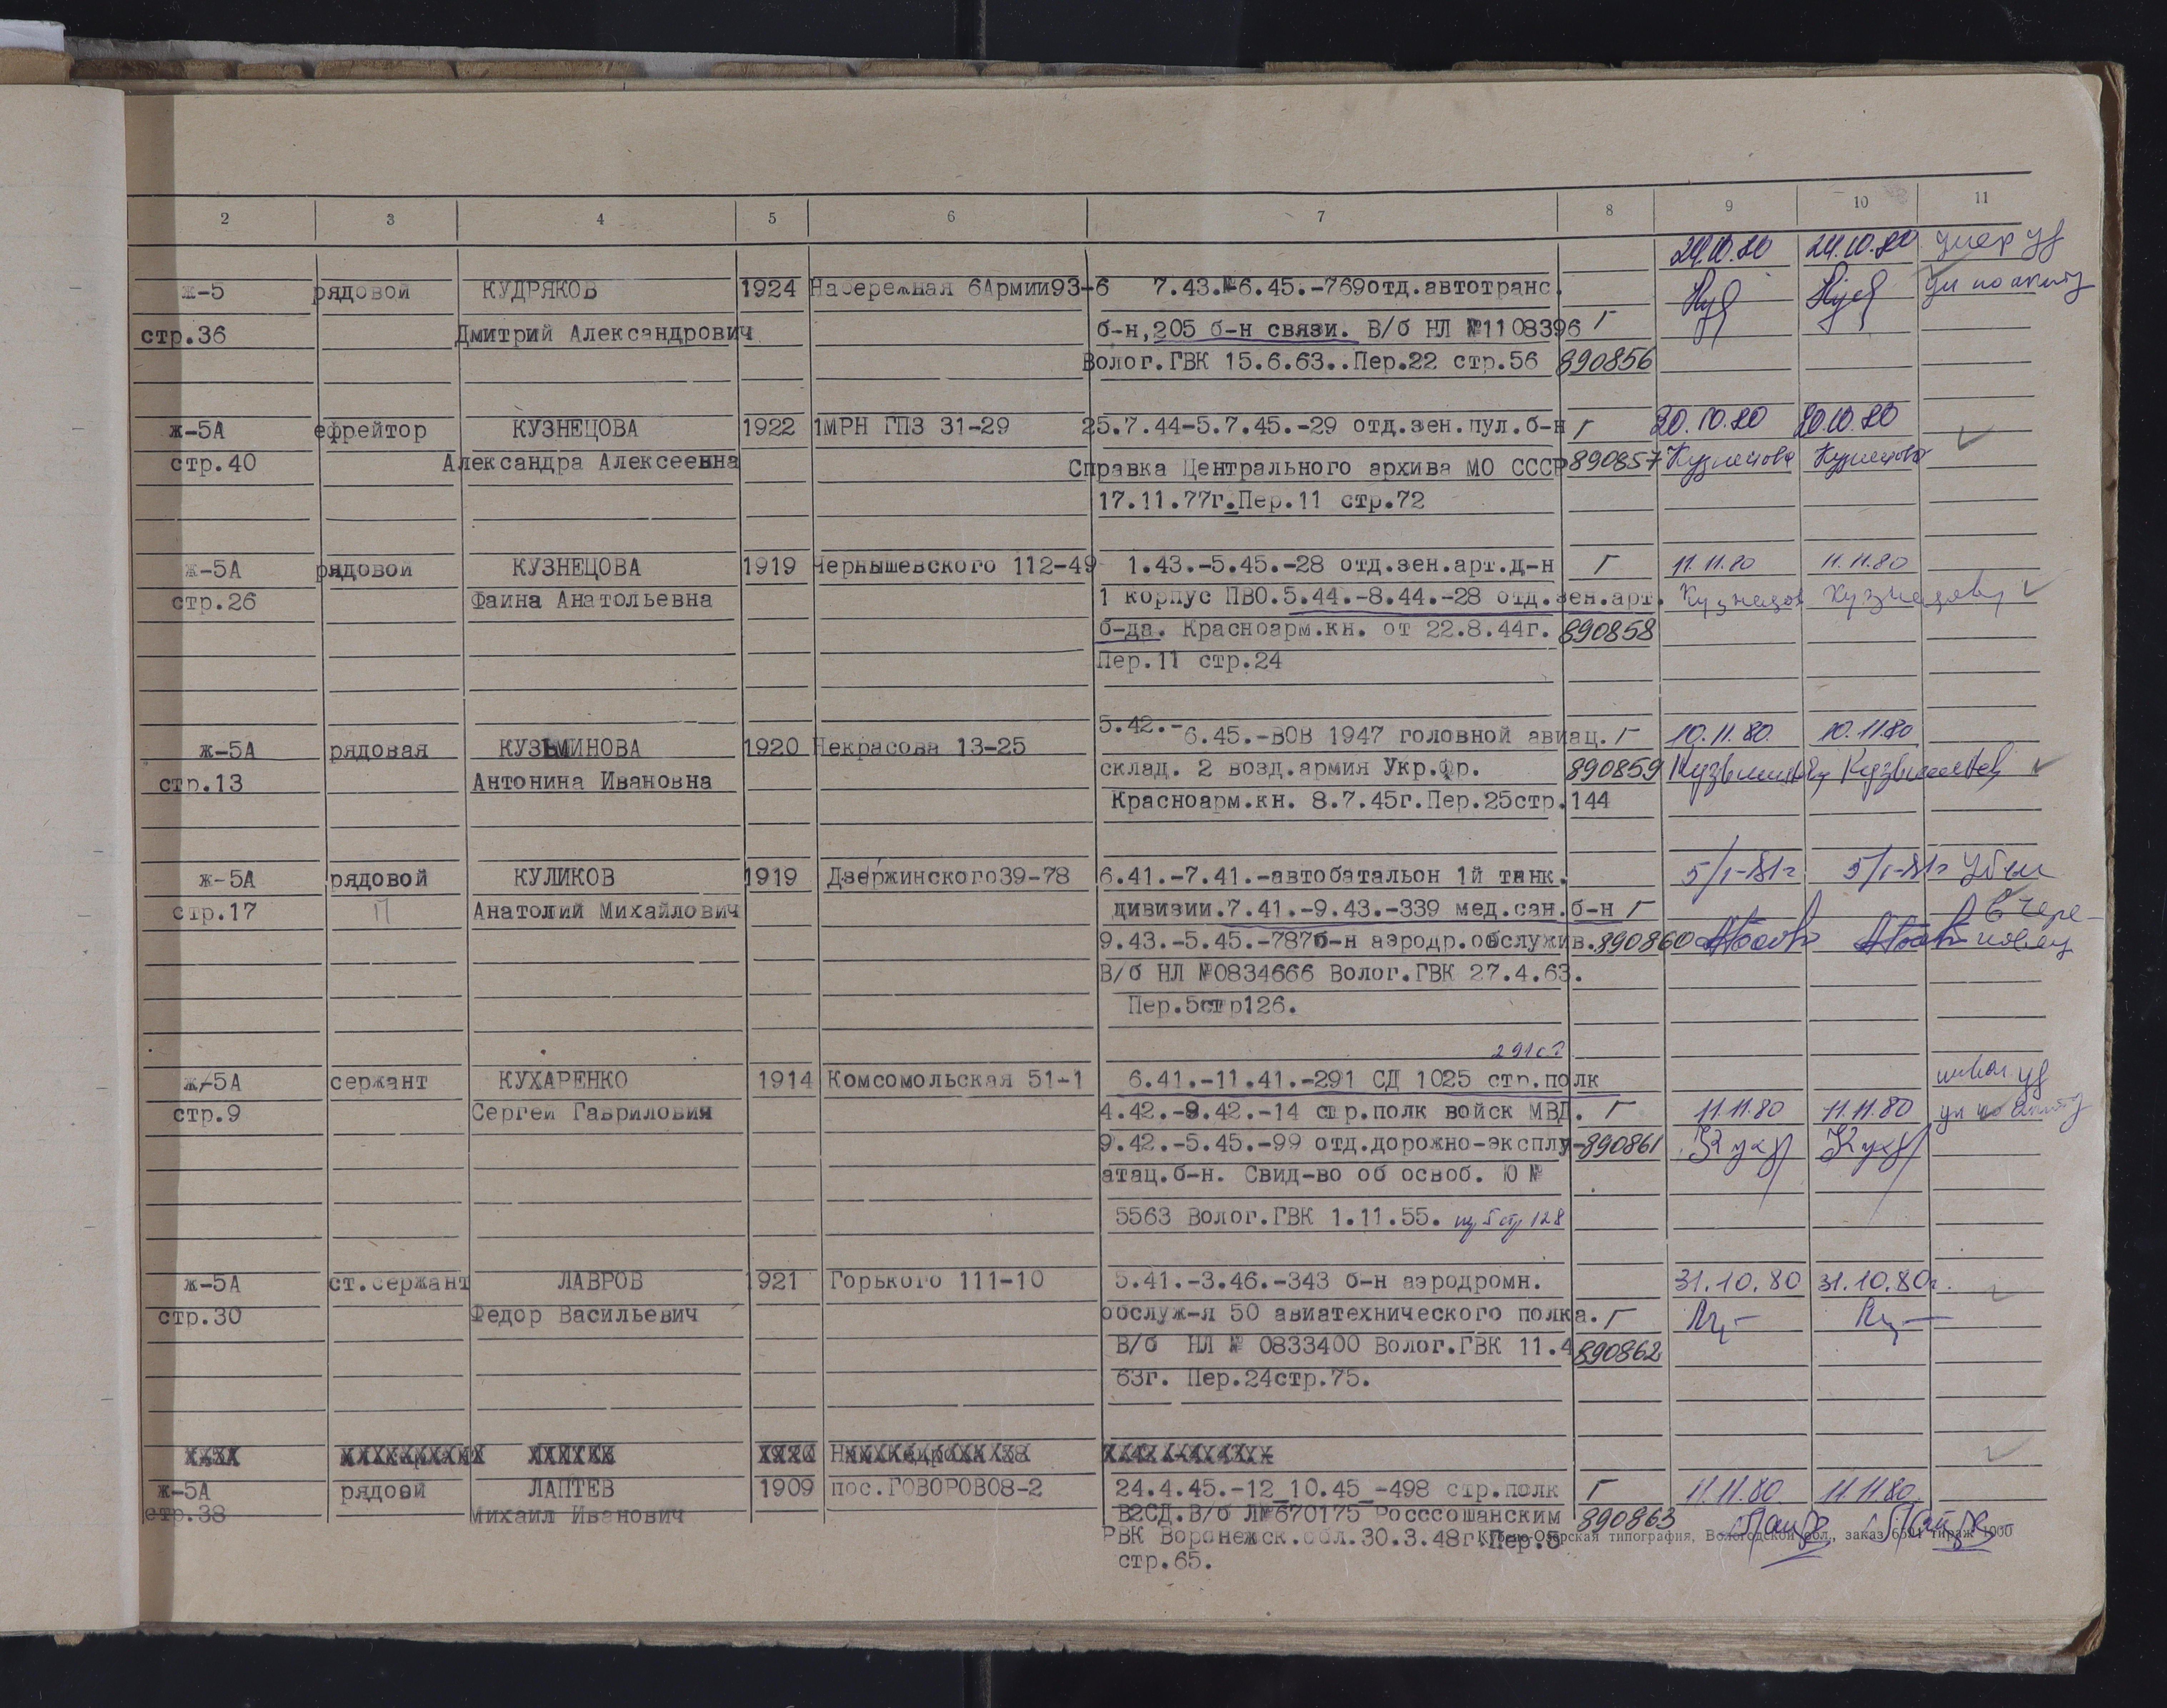 2 3 4 5 6 7 8 9 10 11
24.10.80 24.10.80 умер уд
ж-5 рядовой КУДРЯКОВ 1924 Набережная 6Армии93-6 7.43.-6.45.-769отд.автотранс.
стр.36 Дмитрий Александрович б-н,205 б-н связи. В/б НЛ №1108396 Г
Волог.ГВК 15.6.63..Пер.22 стр.56 890856
ж-5А ефрейтор КУЗНЕЦОВА 1922 1МРН ГПЗ 31-29 25.7.44-5.7.45.-29 отд.зен.пул.б-н Г 20.10.80 20.10.80
стр.40 Александра Алексеевна Справка Центрального архива МО СССР 890857 Кузнецова Кузнецова
17.11.77г.Пер.11 стр.72
ж-5А рядовой КУЗНЕЦОВА 1919 Чернышевского 112-49 1.43.-5.45.-28 отд.зен.арт.д-н Г 11.11.80 11.11.80
стр.26 Фаина Анатольевна 1 корпус ПВО.5.44.-8.44.-28 отд.зен.арт.
б-да. Красноарм.кн. от 22.8.44г. 890858
Пер.11 стр.24
ж-5А рядовая КУЗЬМИНОВА 1920 Некрасова 13-25 5.42.-6.45.-ВОВ 1947 головной авиац. Г 10.11.80. 10.11.80
стр.13 Антонина Ивановна склад. 2 возд.армия Укр.фр. 890859
Красноарм.кн. 8.7.45г.Пер.25стр.144
ж-5А рядовой КУЛИКОВ 1919 Дзержинского39-78 6.41.-7.41.-автобатальон 1й танк. 5/I-81г 5/I-81г Убыл
стр.17 П Анатолий Михайлович дивизии.7.41.-9.43.-339 мед.сан.б-н Г в Чере-
9.43.-5.45.-787б-н аэродр.обслужив. 890860 повец
В/б НЛ №0834666 Волог.ГВК 27.4.63.
Пер.5стр126.
ж-5А сержант КУХАРЕНКО 1914 Комсомольская 51-1 6.41.-11.41.-291 СД 1025 стр.полк
стр.9 Сергей Гаврилович 4.42.-9.42.-14 стр.полк войск МВД. Г 11.11.80 11.11.80
9.42.-5.45.-99 отд.дорожно-эксплу- 890861
атац.б-н. Свид-во об освоб. Ю №
5563 Волог.ГВК 1.11.55. 5 стр 128
ж-5А ст.сержант ЛАВРОВ 1921 Горького 111-10 5.41.-3.46.-343 б-н аэродромн. 31.10.80 31.10.80г.
стр.30 Федор Васильевич обслуж-я 50 авиатехнического полка. Г
В/б НЛ № 0833400 Волог.ГВК 11.4 890862
63г. Пер.24стр.75.
ж-5А рядовй ЛАПТЕВ 1909 пос.ГОВОРОВО8-2 24.4.45.-12_10.45_-498 стр.полк Г 11.11.80. 11.11.80.
стр.38 Михаил Иванович В2СД.В/б Л№670175 Росссошанским 890863
РВК Воронежск.обл.30.3.48г.Пер.5 типография, Вологодской обл., заказ тираж 1000
стр.65.